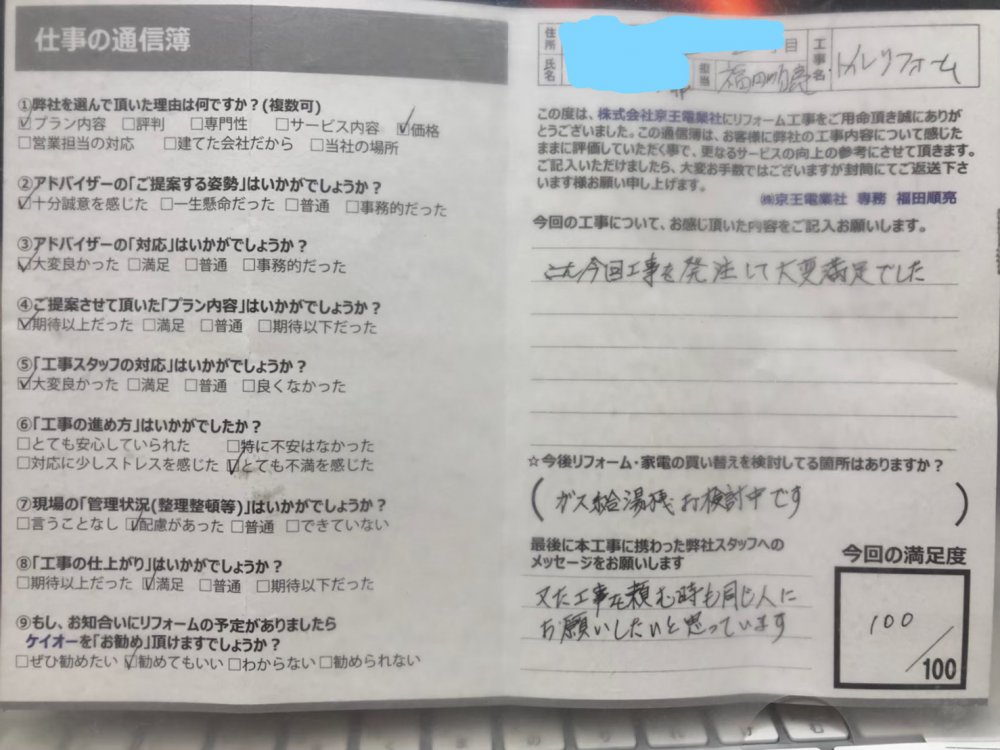 仕事の通信簿
①弊社を選んで頂いた理由は何ですか？(複数可)
☑プラン内容 □評判 □専門性 □サービス内容 ☑価格
□営業担当の対応 □建てた会社だから □当社の場所
②アドバイザーの「ご提案する姿勢」はいかがでしょうか？
☑十分誠意を感じた □一生懸命だった □普通 □事務的だった
③アドバイザーの「対応」はいかがでしょうか？
☑大変良かった □満足 □普通 □事務的だった
④ご提案させて頂いた「プラン内容」はいかがでしょうか？
☑期待以上だった □満足 □普通 □期待以下だった
⑤「工事スタッフの対応」はいかがでしょうか？
☑大変良かった □満足 □普通 □良くなかった
⑥「工事の進め方」はいかがでしたか？
□とても安心していられた □特に不安はなかった
□対応に少しストレスを感じた ☑とても不満を感じた
⑦現場の「管理状況(整理整頓等)」はいかがでしょうか？
□言うことなし ☑配慮があった □普通 □できていない
⑧「工事の仕上がり」はいかがでしょうか？
□期待以上だった ☑満足 □普通 □期待以下だった
⑨もし、お知合いにリフォームの予定がありましたら
ケイオーを「お勧め」頂けますでしょうか？
□ぜひ勧めたい ☑勧めてもいい □わからない □勧められない
住所 目
氏名 担当 福田順亮
工事名 トイレリフォーム
この度は、株式会社京王電業社にリフォーム工事をご用命頂き誠にありが
とうございました。この通信簿は、お客様に弊社の工事内容について感じた
ままに評価していただく事で、更なるサービスの向上の参考にさせて頂きます。
ご記入いただけましたら、大変お手数ではございますが封筒にてご返送下さ
います様お願い申し上げます。
㈱京王電業社 専務 福田順亮
今回の工事について、お感じ頂いた内容をご記入お願いします。
今回工事を発注して大変満足でした
☆今後リフォーム・家電の買い替えを検討してる箇所はありますか？
(ガス給湯機お検討中です)
最後に本工事に携わった弊社スタッフへの
メッセージをお願いします
又た工事を頼む時も同じ人に
お願いしたいと思っています
今回の満足度
100
/100
む